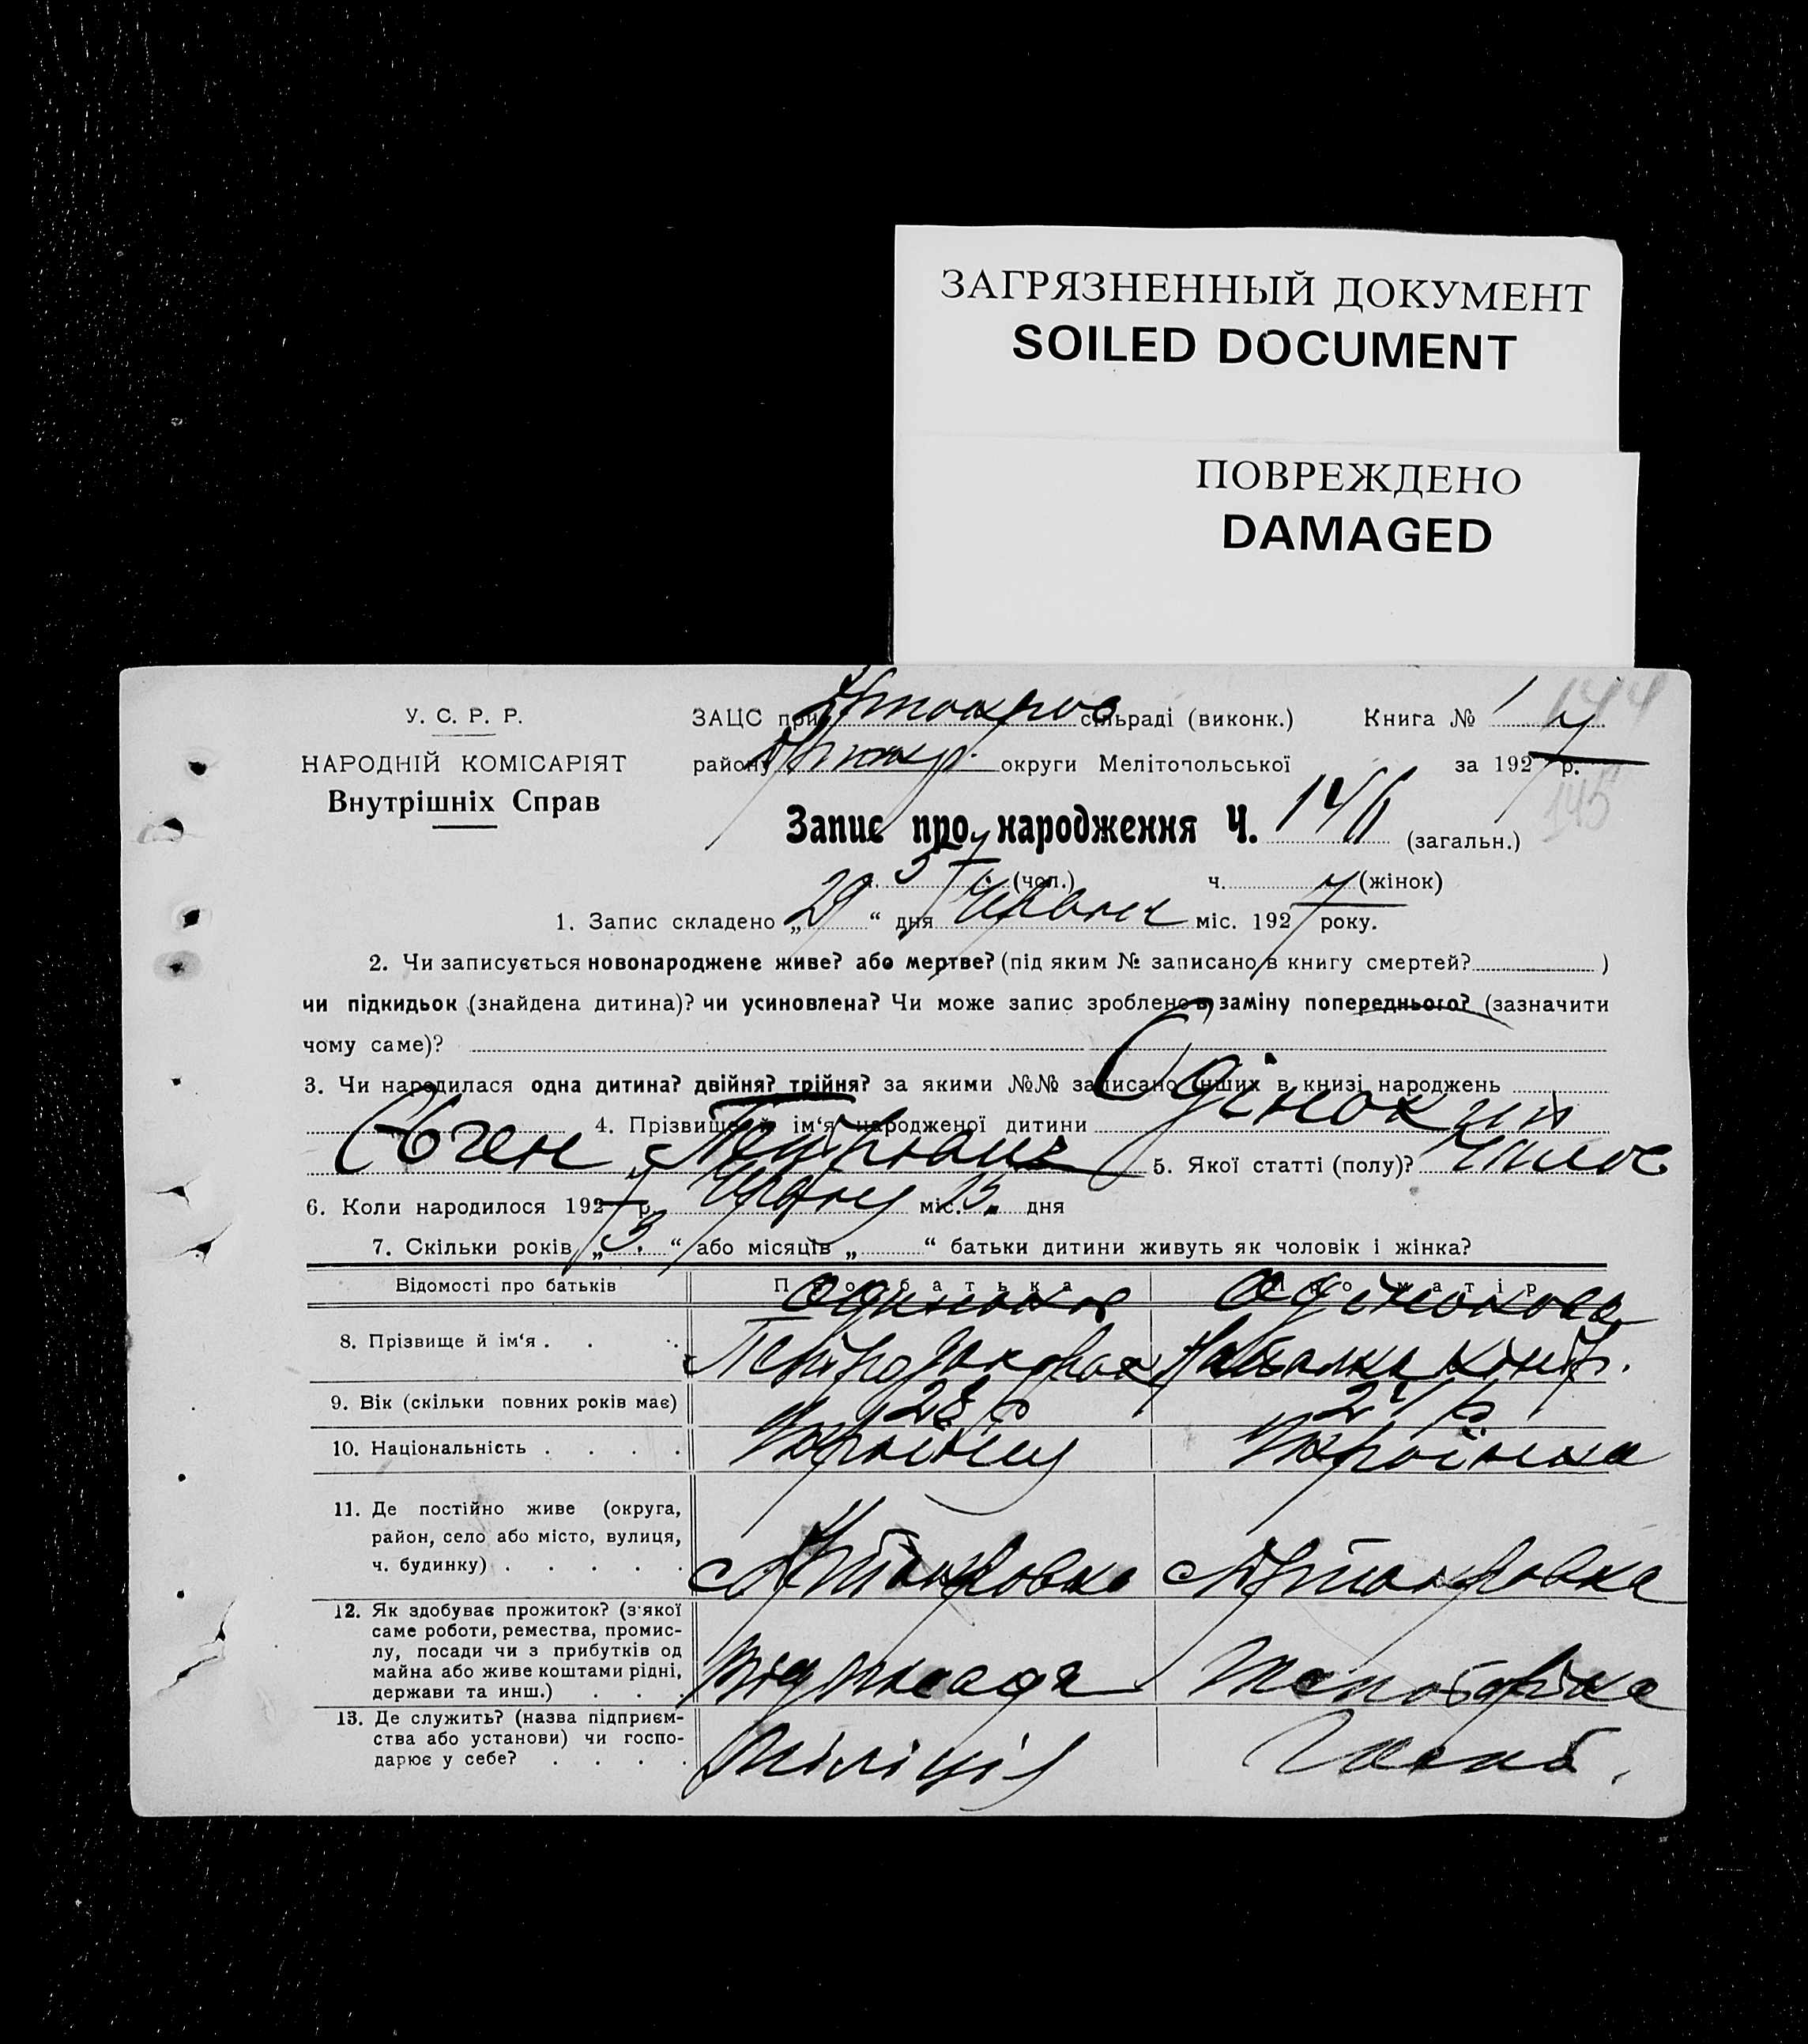 ЗАГРЯЗНЕННЫЙ ДОКУМЕНТ
SOILED DOCUMENT
ПОВРЕЖДЕНО
DAMAGED
У. С. Р. Р.
НАРОДНІЙ КОМІСАРІЯТ
Внутрішніх Справ
ЗАЦС при сільраді (виконк.) Книга № 1 144
району округи Мелітопольської за 1927 р.
145
Запис про народження Ч. 146 (загальн.)
ч. (чол.) ч. (жінок)
1. Запис складено „29“ дня Червня міс. 1927 року.
2. Чи записується новонароджене живе? або мертве? (під яким № записано в книгу смертей? )
чи підкидьок (знайдена дитина)? чи усиновлена? Чи може запис зроблено в заміну попереднього? (зазначити
чому саме)?
3. Чи народилася одна дитина? двійня? трійня? за якими №№ записано інших в книзі народжень
4. Прізвище й ім‘я народженої дитини Одінокий
Євген Петрович 5. Якої статті (полу)? Чолов
6. Коли народилося 1927 р. Червня міс. дня
7. Скільки років „3.“ або місяців „ “ батьки дитини живуть як чоловік і жінка?
Відомості про батьків Про батька Про матір
8. Прізвище й ім‘я . . . Одинокий Одінокова
Петро Наталка
9. Вік (скільки повних років має) 28 р 24 р
10. Національність . . . . Українец Українка
11. Де постійно живе (округа,
район, село або місто, вулиця,
ч. будинку) . . . . .
12. Як здобуває прожиток? (з‘якої
саме роботи, ремества, промис-
лу, посади чи з прибутків од
майна або живе коштами рідні,
держави та инш.) . . . Від посади
13. Де служить? (назва підприєм-
ства або установи) чи госпо-
дарює у себе? . . . . Міліції